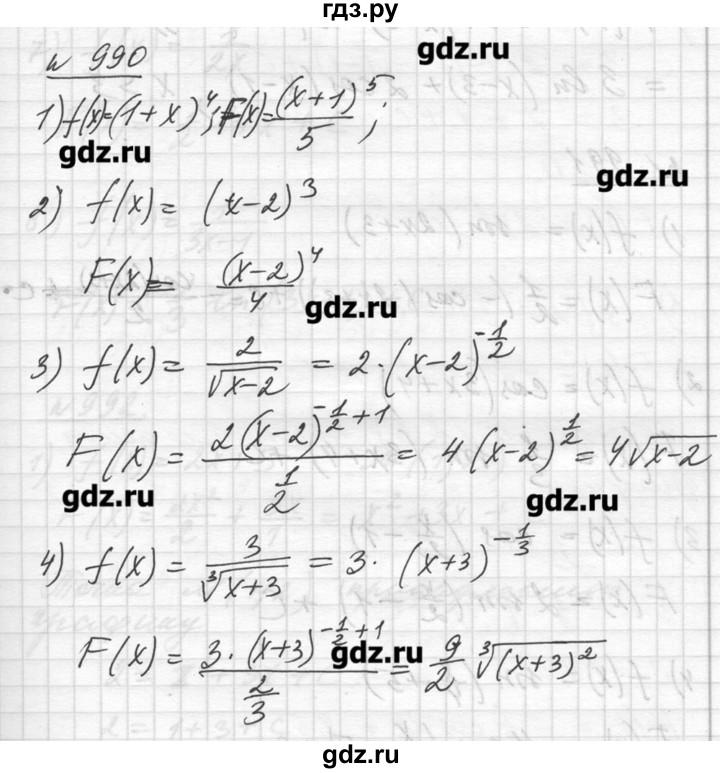 гдз.ру
gdz.ru
№ 990
1) f(x)=(1+x)⁴; F(x)=(x+1)⁵/5;
gdz.ru
gdz.ru
2) f(x)= (x-2)³
F(x)= (x-2)⁴/4
gdz.ru
3) f(x)= 2/√(x-2) = 2·(x-2)^(-1/2)
F(x)= 2(x-2)^(-1/2+1)/(1/2) = 4(x-2)^(1/2) = 4√(x-2)
gdz.ru
gdz.ru
4) f(x)= 3/∛(x+3) = 3·(x+3)^(-1/3)
F(x)= 3·(x+3)^(-1/2+1)/(2/3) = 9/2 ∛((x+3)²)
gdz.ru
gdz.ru